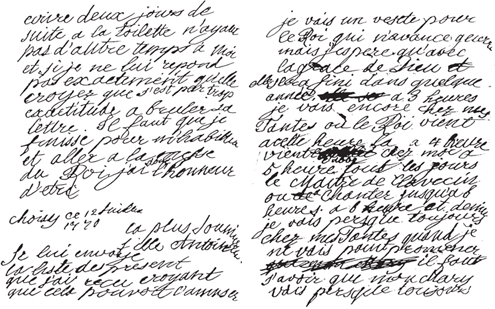 ecrire deux jours de
suite a la toilette n'ayant
pas d'autre temps a moi
et si je ne lui repond
pas exactement qu'elle
croyez que c'est par trop
d'exactitude a bruler sa
lettre. Il faut que je
finisse pour m'habiller
et aller a la messe
du Roi j'ai l'honneur
d'etre
choisy ce 12 juillet
1770
la plus soumise
fille Antoinette
Je lui envoye
la liste des present
que j'ai recu croyant
que cela pouvoit l'amuser
je vais un veste pour
le Roi qui n'avance guere
mais j'espere qu'avec
la grace de Dieu
elle sera fini dans quelque
année a 3 heures
je vais encore chez mes
Tantes ou le Roi vient
a cette heure la, a 4 heure
vient chez moi a
5 heure tous les jours
le maitre de clavecin
ou a chanter jusqu'a 6
heures a 6 heure et demi
je vais presque toujours
chez mes Tantes quand je
ne vais point promener
il faut
savoir que mon mari
vais presque toujours